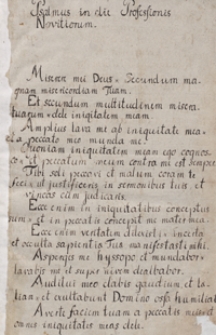 Psalmus in die Professionis
Novitiorum.
Miserere mei Deus. Secundum ma-
gnam misericordiam Tuam.
Et secundum multitudinem misera-
tuarum. dele iniqitatem meam.
Amplius lava me ab iniquitate mea
a peccato meo munda me.
Quoniam iniquitatem meam ego cognos-
et peccatum meum contra me est semper
Tibi soli peccavi et malum coram te
feci ut justificeris in sermonibus tuis et
vincas cum judicaris.
Ecce enim in iniquitatibus conceptus
sum. et in peccatis concepit me mater mea.
Ecce enim veritatem dilexisti. incerta
et occulta sapientiæ Tuæ manifestasti mihi.
Asperges me hyssopo et mundabor.
lavabis me et super nivem dealbabor.
Auditui meo dabis gaudium et læ-
tiam. et exultabunt ossa humiliat
Averte faciem tuam a peccatis meis
omnes iniquitates meas dele.